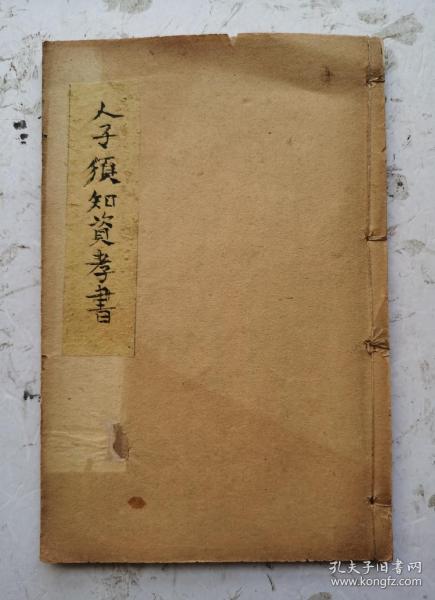 人子須知資孝書
孔夫子旧书网
www.kongfz.com